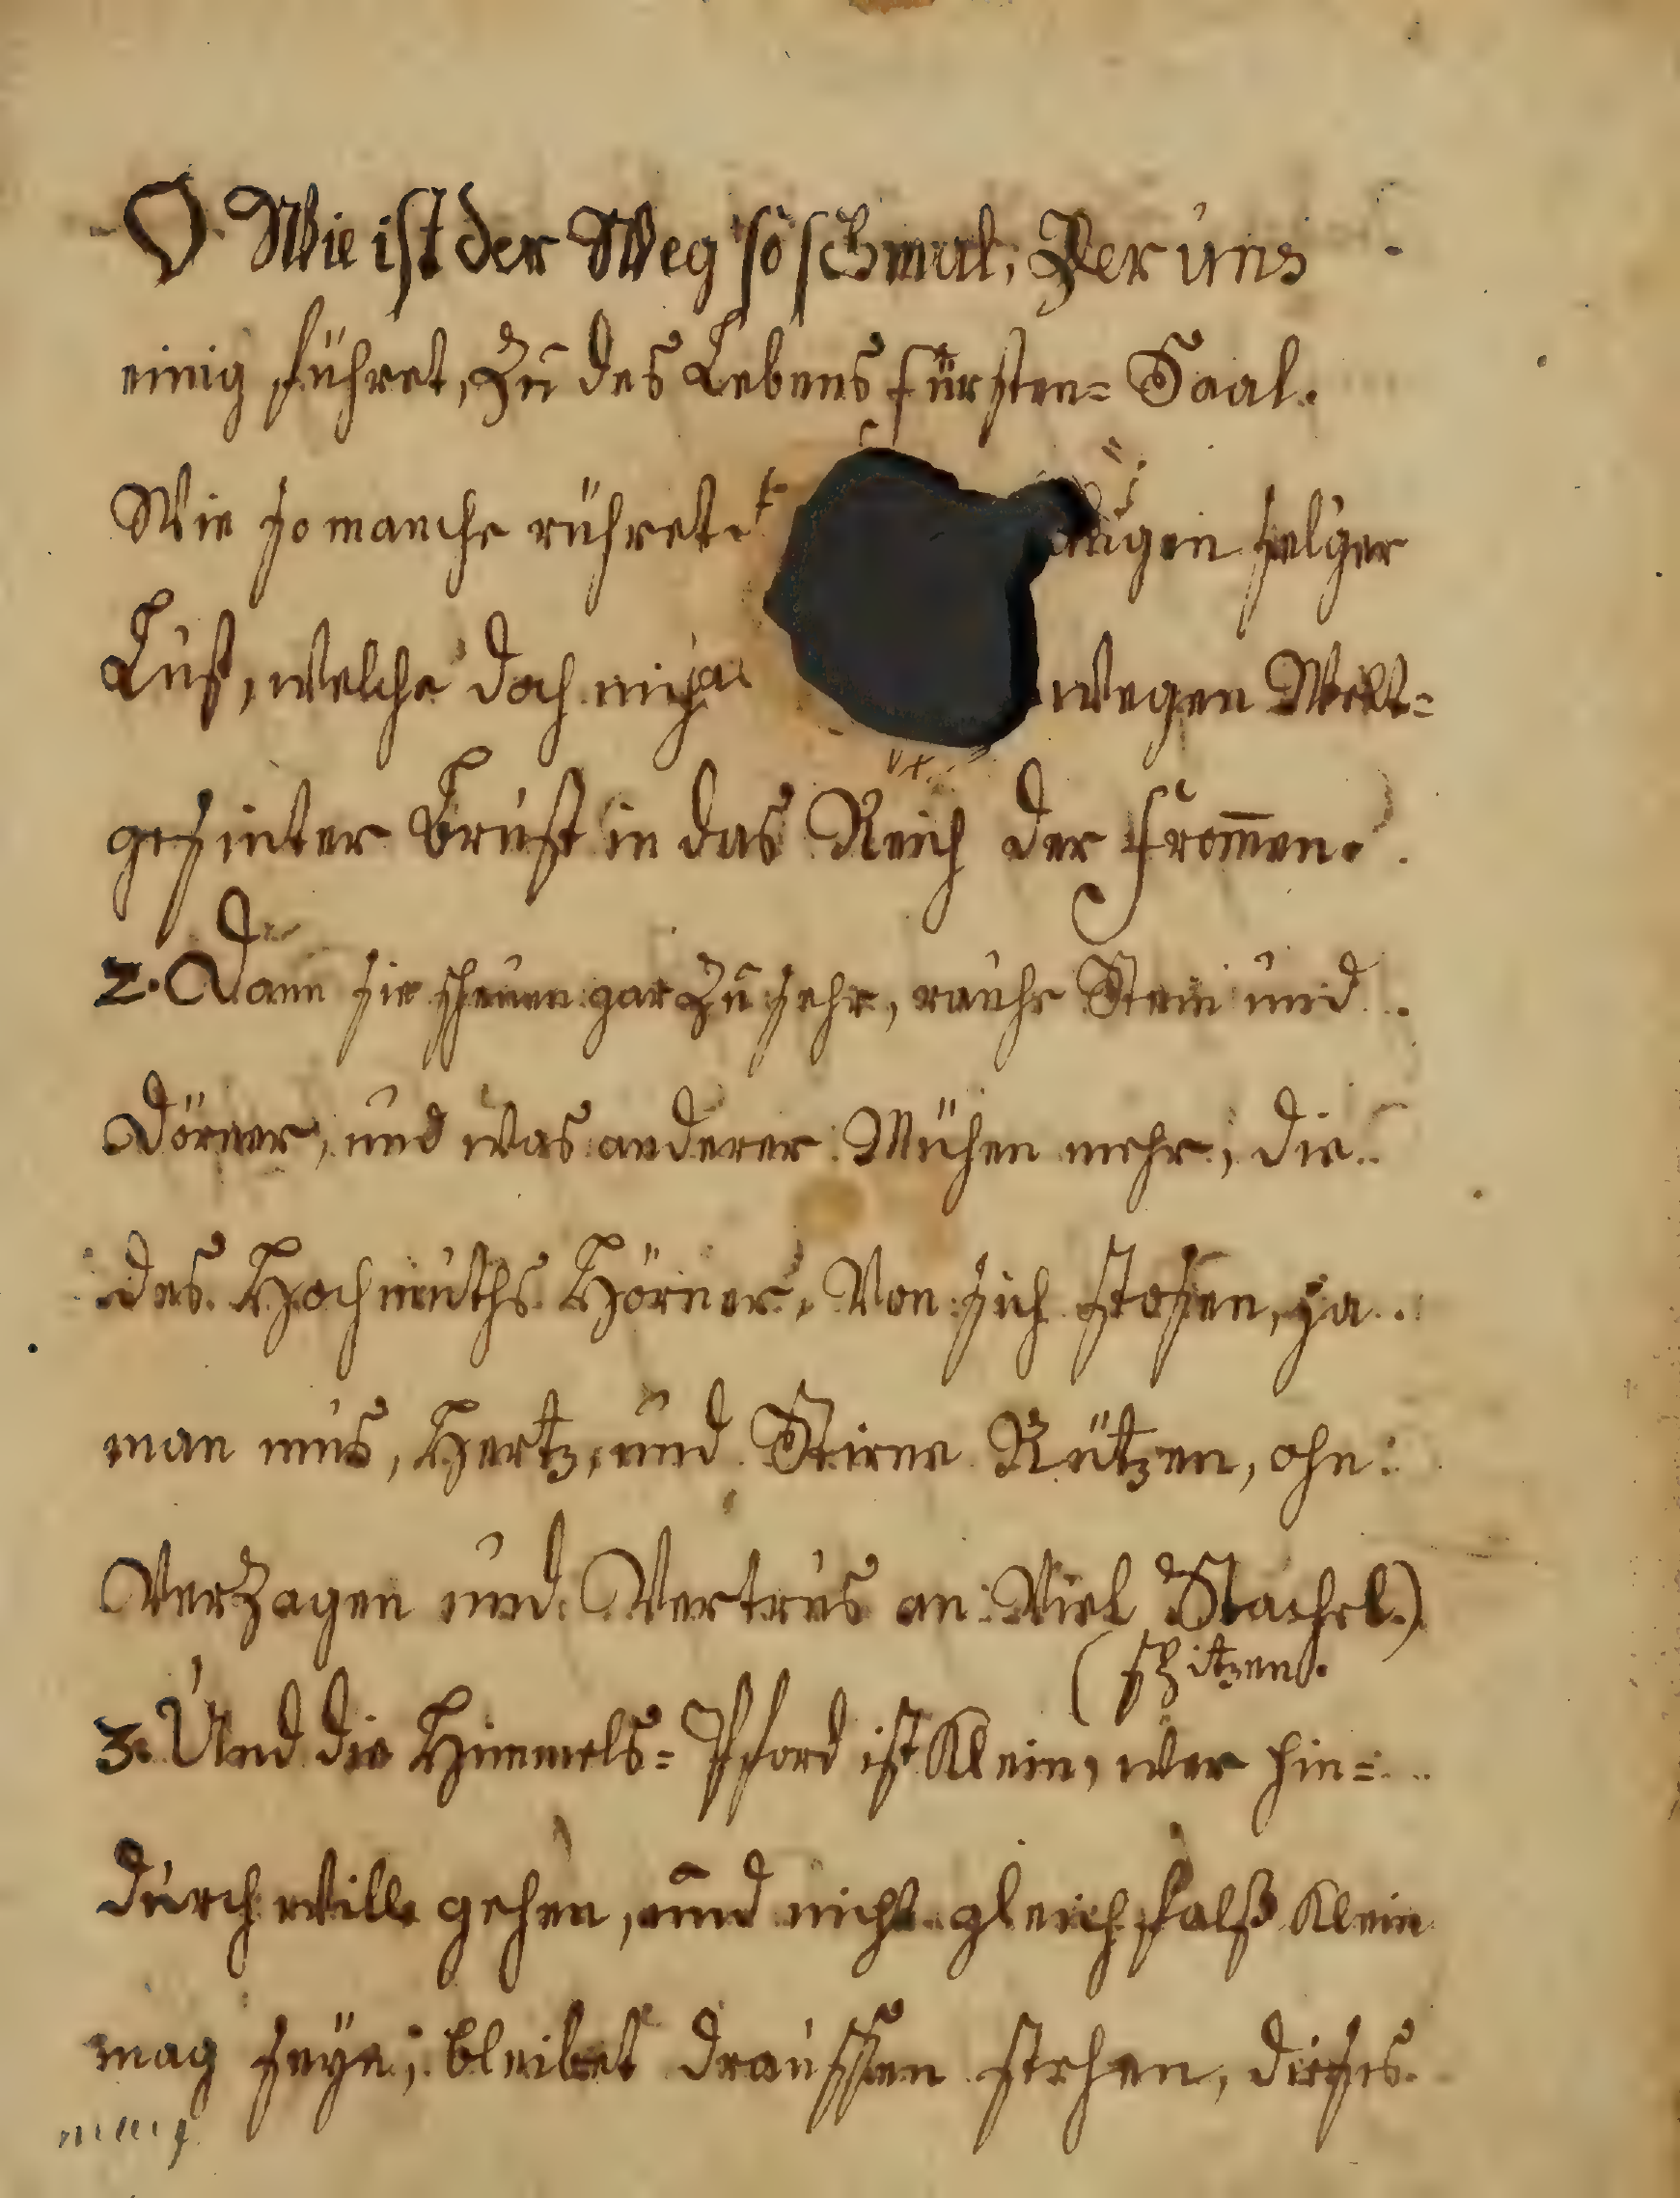 O Wie ist der Weg so schmal, Der uns
einig führet, Zu des Lebens fürsten= Saal.
Wie so manche rühret. selger
Lust, welche doch wegen Welt=
gesinter Brust in das Reich der from̅en.
2. Dann sie scheuen gar Zu sehr, rauhe Stein und
Dörner, und was anderer Mühen mehr, die
des Hochmuths Hörner, Von sich stosen, ja
man mus, Hertz, und Stirne Rützen, ohn
Verzagen und Vertrus an Viel Stachel.)
(spitzen.
3. Und die Himmels= Pford ist Klein, wer hin=
durch will gehen, und nicht gleichfalß Klein
mag seyn, bleibet draussen stehen, dieses